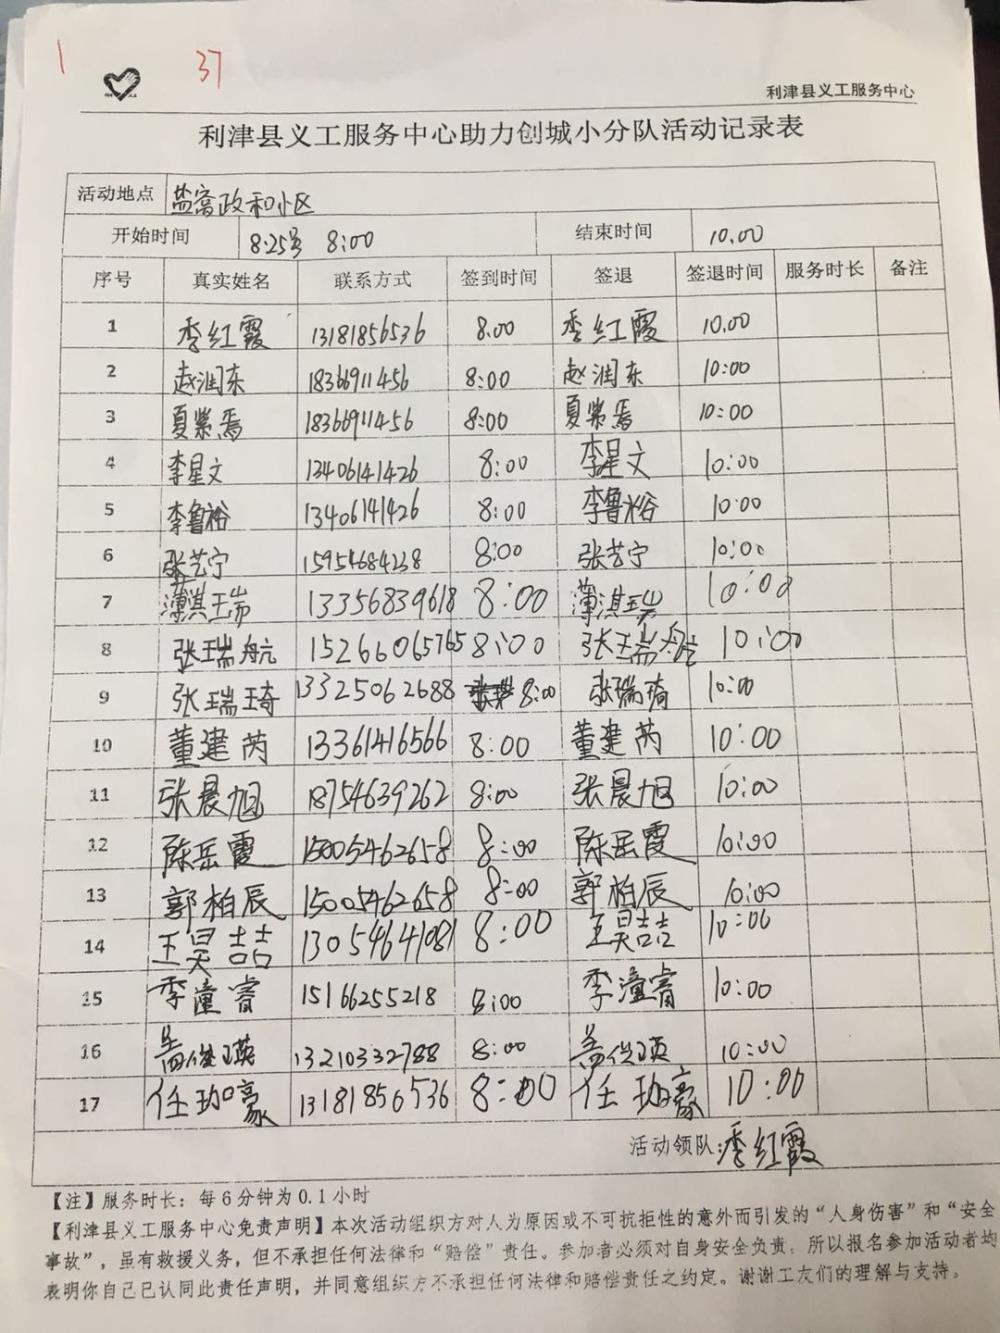 1 37
利津县义工服务中心
利津县义工服务中心助力创城小分队活动记录表
活动地点 盐窝政和小区
开始时间 8.25号 8:00 结束时间 10.00
序号 真实姓名 联系方式 签到时间 签退 签退时间 服务时长 备注
1 季红霞 13181856536 8.00 季红霞 10.00
2 赵润东 18366911456 8:00 赵润东 10:00
3 夏紫焉 18366911456 8:00 夏紫焉 10:00
4 李星文 13406141426 8:00 李星文 10:00
5 李鲁裕 13406141426 8:00 李鲁裕 10:00
6 张艺宁 15954684238 8:00 张艺宁 10:00
7 薄淇瑞 13356839618 8:00 薄淇瑞 10:00
8 张瑞航 15266065765 8:00 张瑞航 10:00
9 张瑞琦 13325062688 8:00 张瑞琦 10:00
10 董建芮 13361416566 8:00 董建芮 10:00
11 张晨旭 18754639262 8:00 张晨旭 10:00
12 陈岳霞 15005462658 8:00 陈岳霞 10:00
13 郭柏辰 15005462658 8:00 郭柏辰 10:00
14 王昊喆 13054641081 8:00 王昊喆 10:00
15 李潼睿 15166255218 8:00 李潼睿 10:00
16 13210332788 8:00 10:00
17 任 豪 13181856536 8:00 任 豪 10:00
活动领队:季红霞
【注】服务时长：每6分钟为0.1小时
【利津县义工服务中心免责声明】本次活动组织方对人为原因或不可抗拒性的意外而引发的“人身伤害”和“安全
事故”，虽有救援义务，但不承担任何法律和“赔偿”责任。参加者必须对自身安全负责。所以报名参加活动者均
表明你自己已认同此责任声明，并同意组织方不承担任何法律和赔偿责任之约定。谢谢工友们的理解与支持。